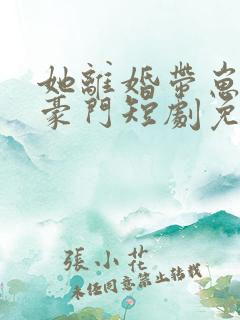 她離婚帶崽
豪門短劇免
張小花
未經同意禁止轉載